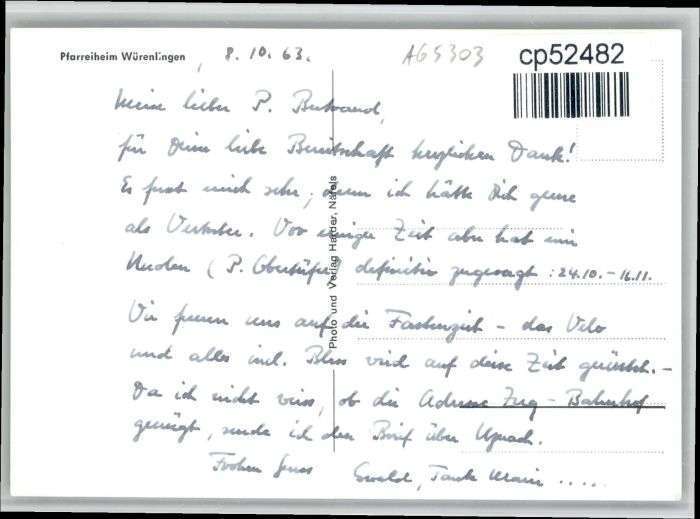 Pfarreiheim Würenlingen
8.10.63.
AG5303
cp52482
Meine lieber P. Bertrand,
für Deine liebe Bereitschaft herzlichen Dank!
Es freut mich sehr; denn ich hätte Dich gerne
als Vertreter. Vor einiger Zeit aber hat mir
Nuolen (P. definitiv zugesagt: 24.10. – 16.11.
Wir freuen uns auf die Fastenzeit – das Velo
und alles incl. Bless wird auf diese Zeit gerüstet. –
Da ich nicht weiss, ob die Adresse Zug – Bahnhof
genügt, sende ich den Brief über Uznach.
Frohen Gruss Ewald, Tante Marie .....
Photo und Verlag Harder, Näfels